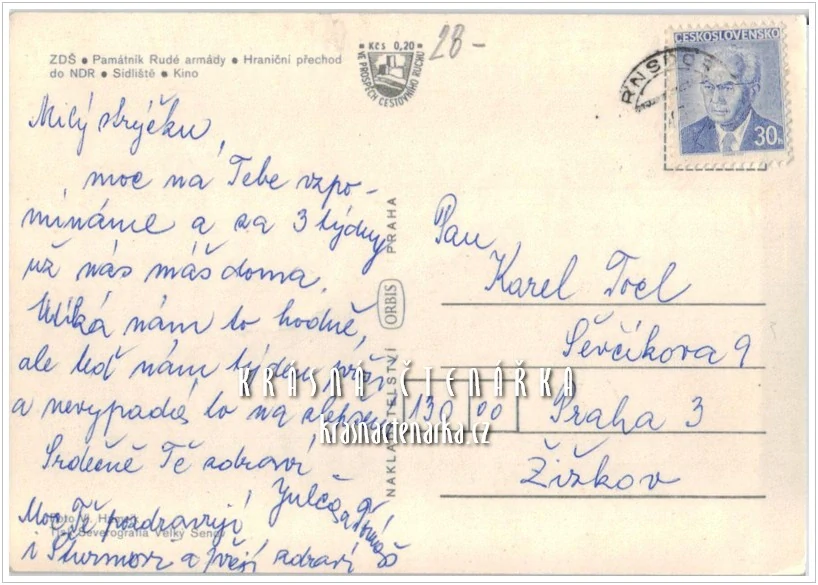 ZDŠ ● Památník Rudé armády ● Hraniční přechod
do NDR ● Sídliště ● Kino
Kčs 0,20
VE PROSPĚCH CESTOVNÍHO RUCHU
28-
ČESKOSLOVENSKO
30h
Milý strýčku,
moc na Tebe vzpo-
mínáme a za 3 týdny
už nás máš doma.
Utíká nám to hodně,
ale teď nám týden prší
a nevypadá to na
Srdečně Tě zdraví
Julča a Tomáš
Moc Tě pozdravují
i a zdraví
Foto V.
Tisk Severografia Velký Šenov
NAKLADATELSTVÍ ORBIS PRAHA
Pan
Karel Tocl
Ševčíkova 9
130 00 Praha 3
Žižkov
KRÁSNÁ ČTENÁŘKA
krasnactenarka.cz